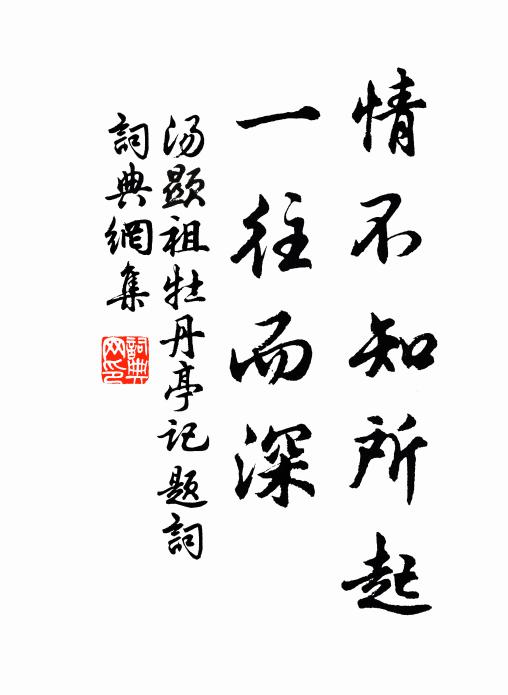 情不知所起
一往而深
汤顯祖牡丹亭记题詞
詞典網集
詞典网印